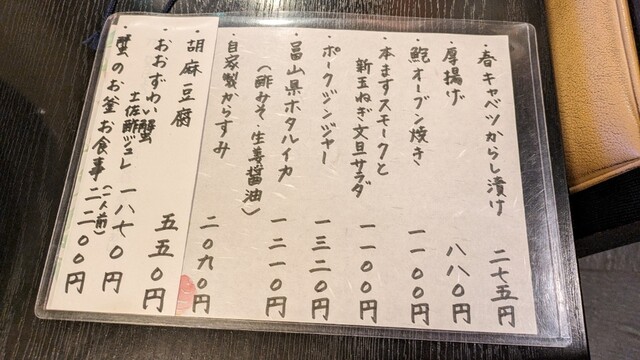 ・春キャベツからし漬け 二七五円
・厚揚げ 八八〇円
・鮑オーブン焼き 一一〇〇円
・本ますスモークと
新玉ねぎ文旦サラダ 一一〇〇円
・ポークジンジャー 一三二〇円
・富山県ホタルイカ
(酢みそ、生姜醤油) 一二一〇円
・自家製からすみ 二〇九〇円
・胡麻豆腐 五五〇円
・おおずわい蟹
土佐酢ジュレ 一八七〇円
・蟹のお釜お食事(一人前) 二二〇〇円